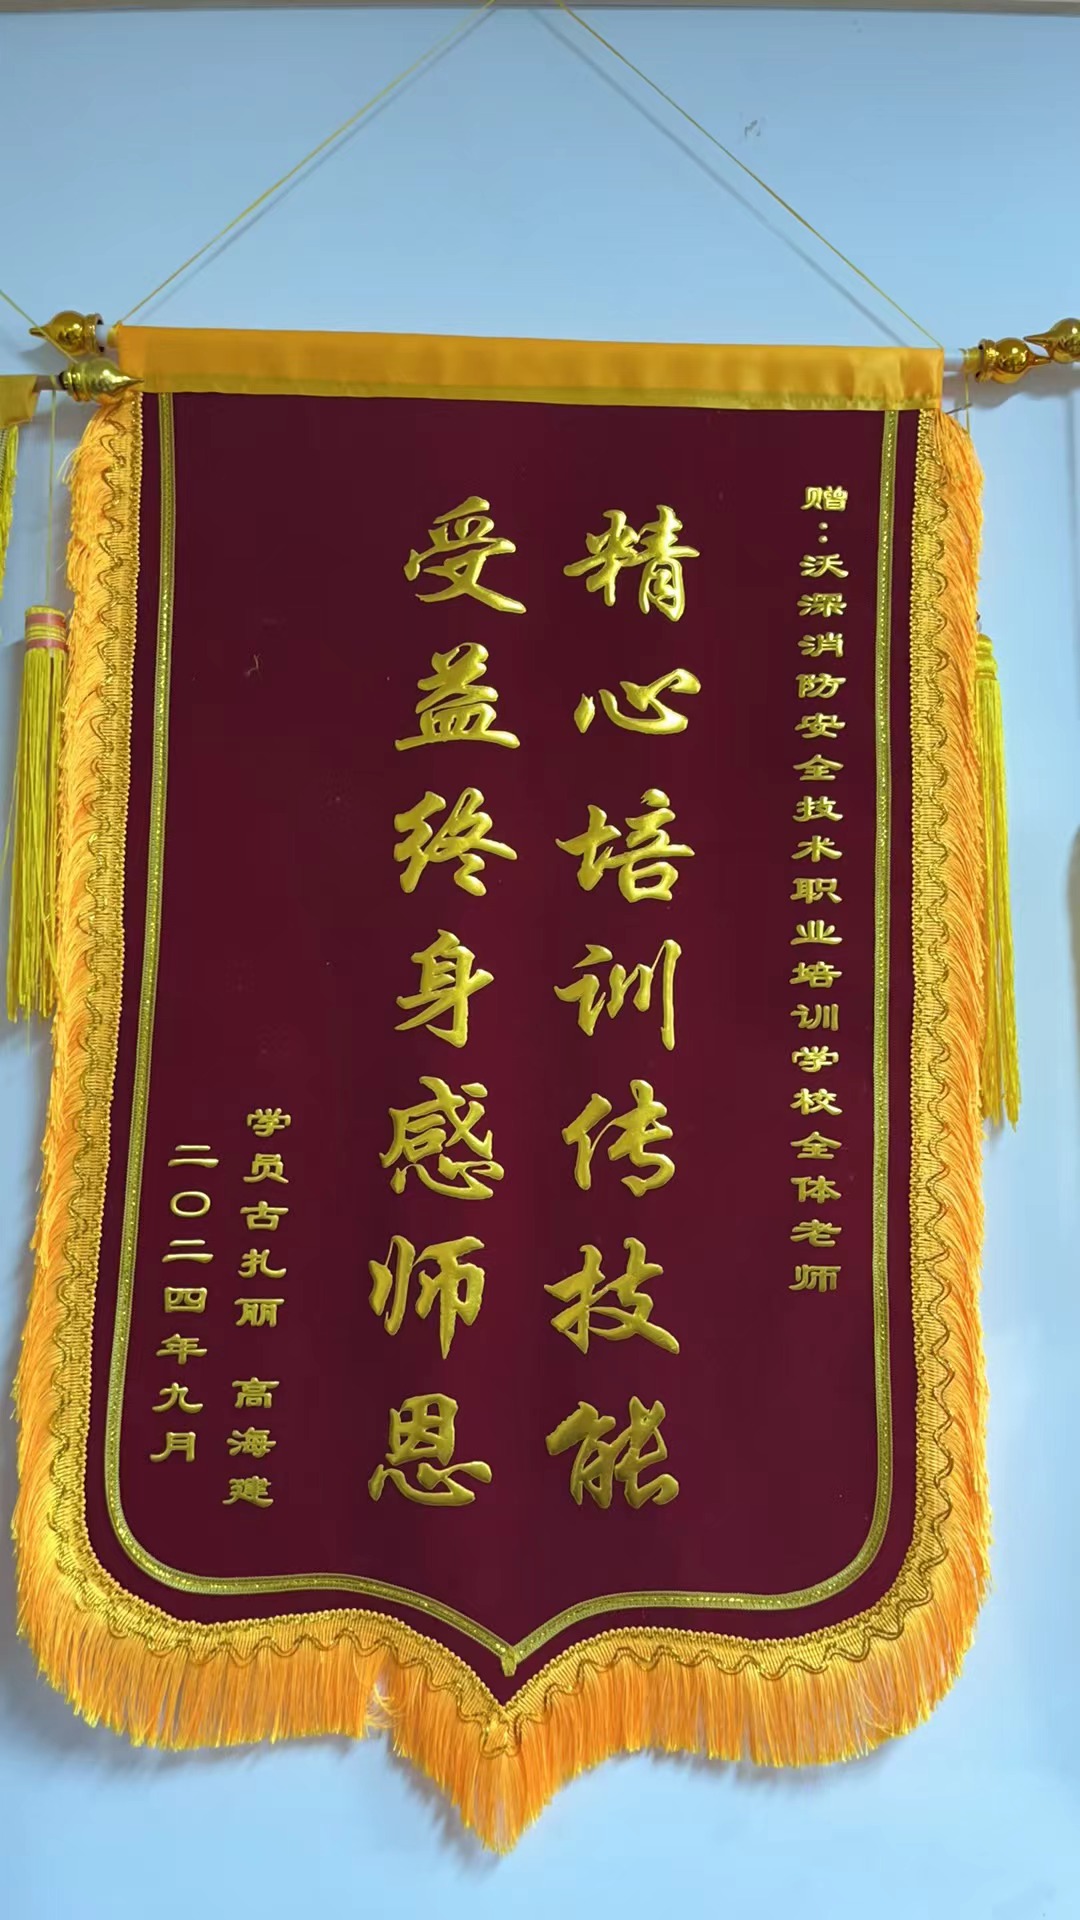 赠:沃深消防安全技术职业培训学校全体老师
精心培训传技能
受益终身感师恩
学员古扎丽 高海建
二〇二四年九月